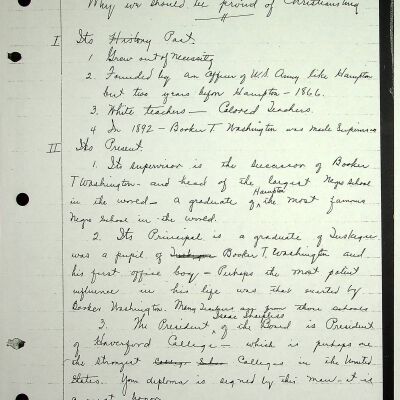 Why we should be proud of Christiansburg
I Its History Past.
1 Grew out of necessity
2. Founded by an Officer of U.S. Army like Hampton
but two years before Hampton - 1866.
3. White teachers — Colored Teachers.
4 In 1892 - Booker T Washington was made Supervisor
II Its Present.
1. Its supervisor is the successor of Booker
T Washington - and head of the largest Negro School
in the world - a graduate of Hampton the most famous
Negro School in the world.
2. Its Principal is a graduate of Tuskegee
was a pupil of Tuskegee Booker T. Washington and
his first office boy - Perhaps the most potent
influence in his life was that exerted by
Booker Washington. Many Teachers are from those schools
3. The President Isaac Sharpless of the Board is President
of Haverford College - which is perhaps one
the strongest College Colleges in the United
States. Your diploma is signed by this man. it is
a great honor